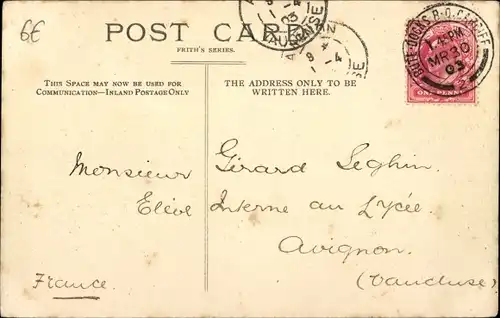 6E
POST CARD
FRITH'S SERIES.
THIS SPACE MAY NOW BE USED FOR
COMMUNICATION—INLAND POSTAGE ONLY
THE ADDRESS ONLY TO BE
WRITTEN HERE.
BUTE-DOCKS B.O. CARDIFF
PM
MR 30
03
ONE PENNY
Monsieur Gérard Seghin
Elève Interne au Lycée
Avignon
France. (Vaucluse)